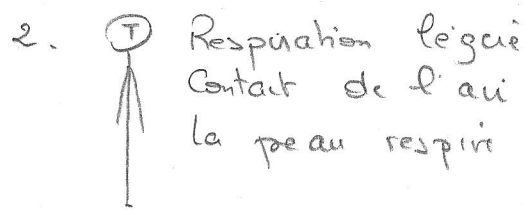 2. T Respiration légère
Contact de l'air
la peau respire